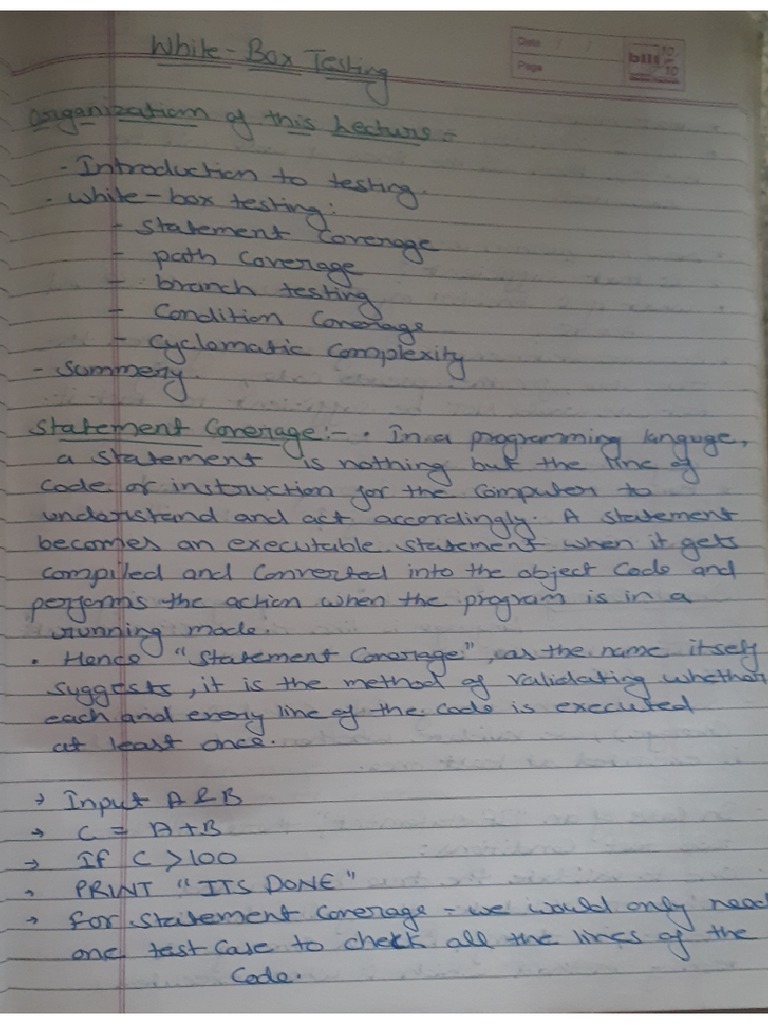 White-Box Testing
Date
Page
Organization of this Lecture:-
- Introduction to testing.
- white-box testing:
- statement coverage
- path coverage
- branch testing
- condition coverage
- cyclomatic complexity
- summery
Statement Coverage:- • In a programming languge,
a statement is nothing but the line of
code or instruction for the computer to
understand and act accordingly. A statement
becomes an executable statement when it gets
compiled and converted into the object code and
performs the action when the program is in a
running mode.
• Hence "Statement Coverage", as the name itself
suggests, it is the method of validating whether
each and every line of the code is executed
at least once.
→ Input A & B
→ C = A+B
→ If C >100
→ PRINT "ITS DONE"
→ For statement coverage - we would only need
one test case to check all the lines of the
code.